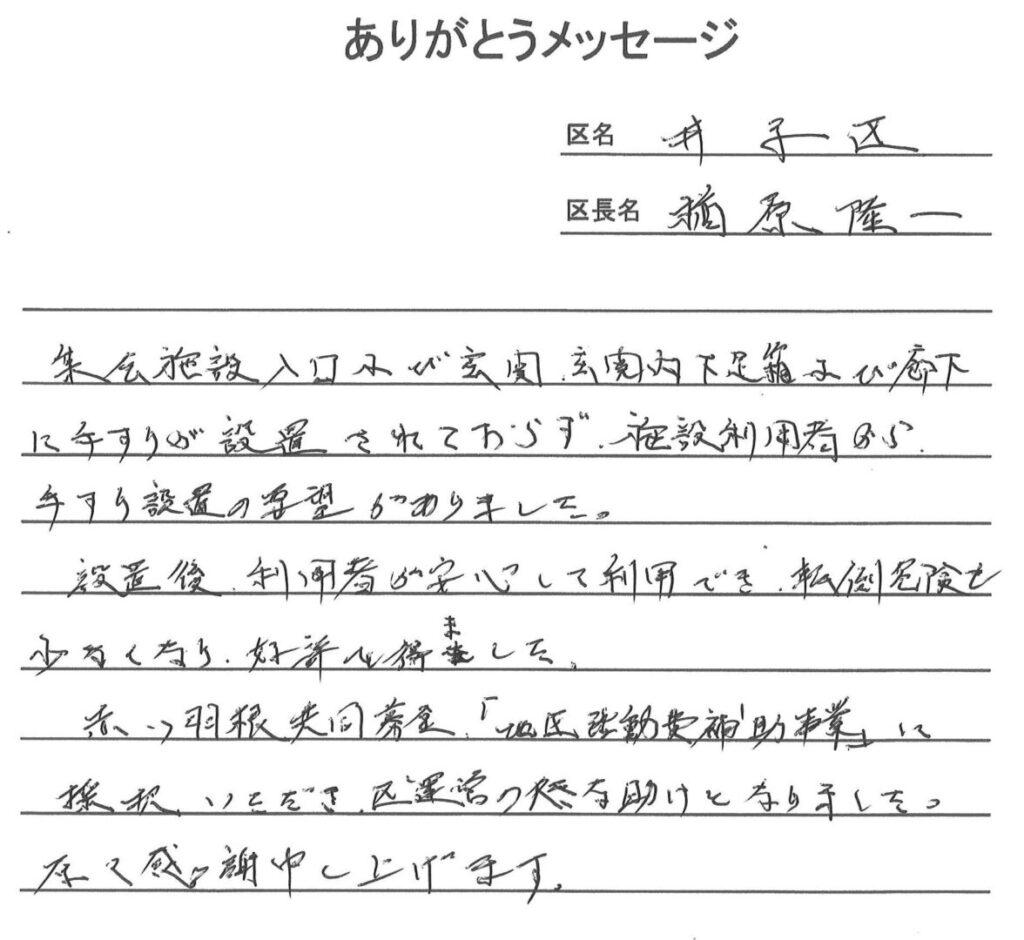 ありがとうメッセージ
区名 井子区
区長名 楢原隆一
集会施設入口及び玄関、玄関内下足箱及び廊下
に手すりが設置されておらず、施設利用者から
手すり設置の要望がありました。
設置後、利用者が安心して利用でき、転倒危険も
少なくなり、好評を得ました。
赤い羽根共同募金、「地区活動費補助事業」に
採択いただき、区運営の大きな助けとなりました。
厚く感謝申し上げます。